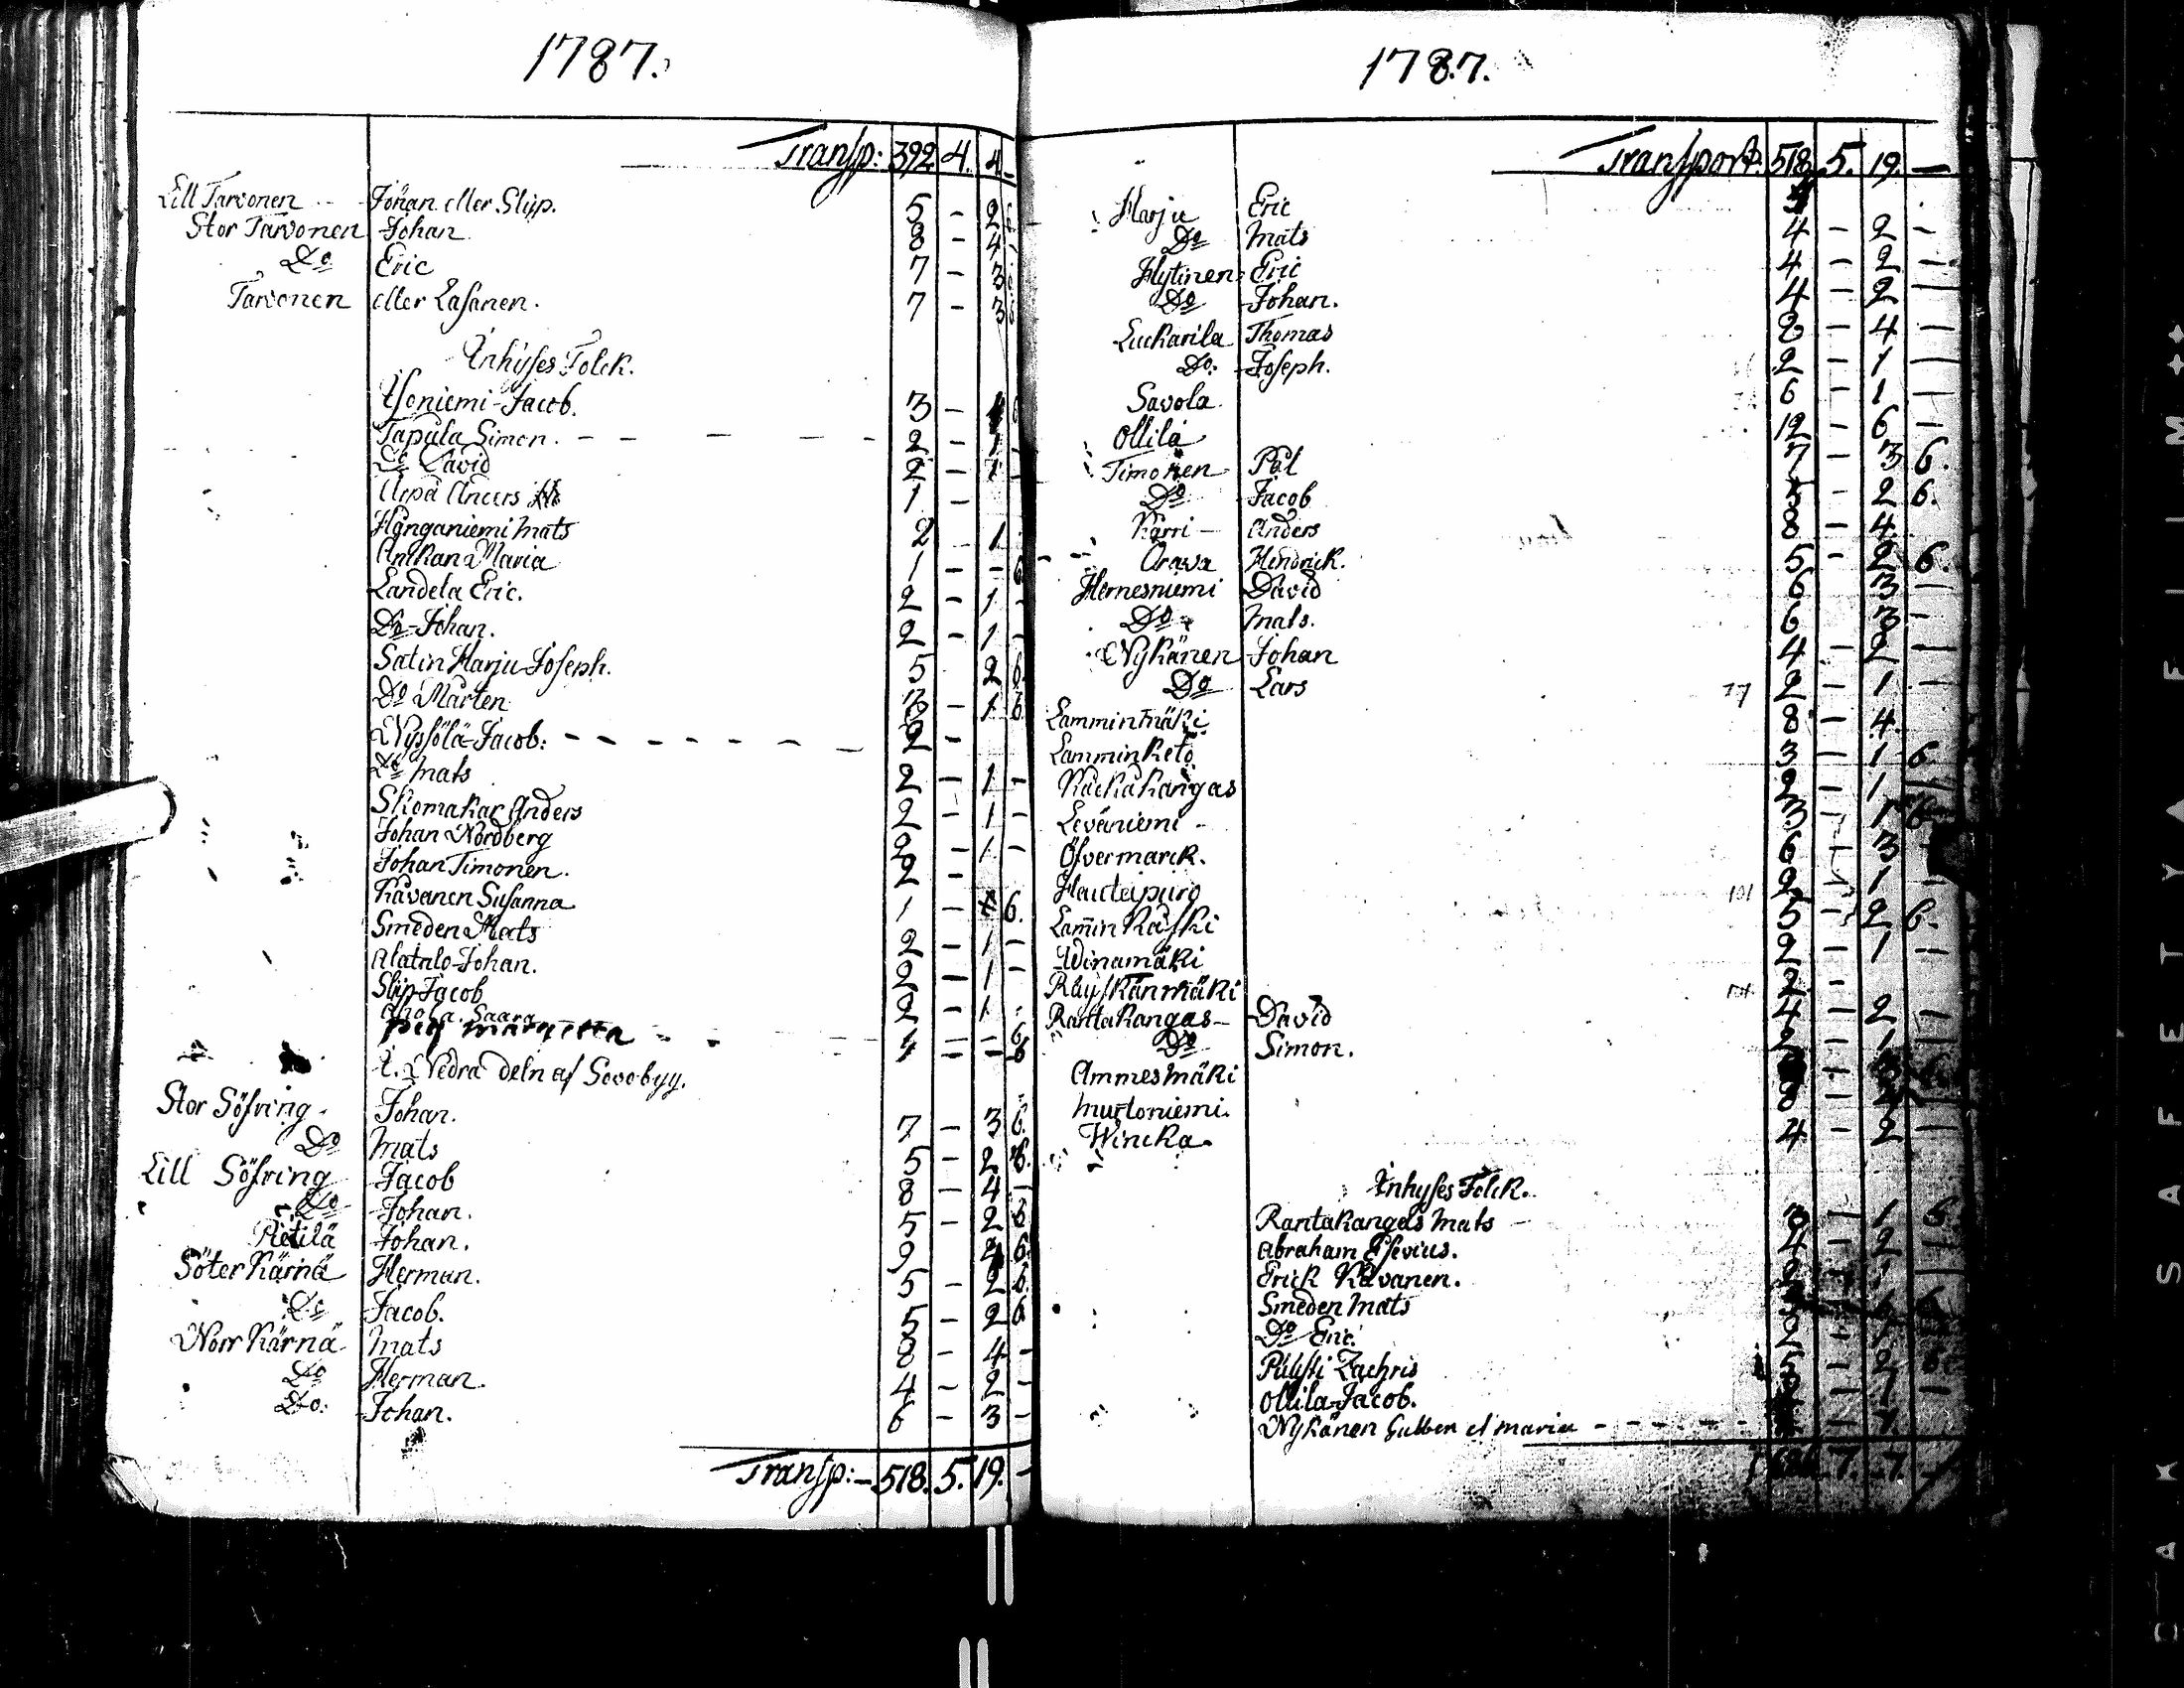 1787.
Transp: 392 4. 4 -
Lill Tarvonen Johan eller Slip. 5 - 2
Stor Tarvonen Johan 8 - 4 -
Do Eric 7 - 3
Tarvonen eller Lasanen. 7 - 3
Inhyses Folck.
Isoniemi Jacob. 3 -
Tapula Simon. 2 - 1
Do David 2 - 1
Anders 1 -
Hanganiemi Mats 2 1
Maria 1 - - 6
Landela Eric. 2 - 1 -
Do Johan. 2 - 1 -
Satin Harju Joseph. 5 2 6.
Do Mårten 3 - 1 6.
Nyssölä Jacob: 2 -
Do Mats 2 - 1 -
Skomakar Anders 2 - 1 -
Johan Nordberg 2 - 1 -
Johan Timonen. 2 -
Kåvanen Susanna 1 - 6.
Smeden Mats 2 - 1 -
Alatalo Johan. 2 - 1 -
Slip Jacob 2 - 1
Ahola Saara
Pig Margetta
i Nedra deln af Sovobyy.
Stor Söfring Johan. 7 - 3 6.
Do Mats 5 - 2 6.
Lill Söfring Jacob 8 - 4 -
Do Johan. 5 - 2 6
Pietilä Johan. 9 4 6.
Söter Kärnä Herman. 5 - 2 6.
Do Jacob. 5 - 2 6
Norr Kärnä Mats 8 - 4 -
Do Herman. 4 - 2 -
Do: Johan. 6 - 3 -
Transp: - 518. 5. 19. -
1787.
Transport. 518 5. 19. -
Harju Eric
Do Mats 4 - 2 -
Hytinen Eric 4 - 2 -
Do Johan. 4 - 2 -
Luckarila Thomas 8 - 4 -
Do. Joseph. 2 - 1 -
Savola 6 - 1 -
Ollila 12 - 6 -
Timonen Pål 7 - 3 6.
Do Jacob - 2 6.
Kärri Anders 8 - 4
Orava Hendrick. 5 - 2 6.
Hernesniemi David 6 3 -
Do Mats. 6 3 -
Nykänen Johan 4 - 2 -
Do Lars 2 - 1 -
Lamminmäki 8 - 4
Lamminketo 3 - 1 6.
Kuckakangas 2 1
Leväniemi 3
Öfvermarck. 6 3
Hautapuro 2 - 1 -
Lamin Käyski 5 - 2 6.
Winamäki 2 - 1 -
Räyskänmäki 2
Rantakangas David 4 - 2 -
Do Simon. 2 - 1
Ammesmäki
Murtoniemi. 8
Wincka. 4 - 2 -
Inhyses Folck.
Rantakangas Mats 1 6
Abraham 4 - 2
Erick Kåvanen. 2
Smeden Mats
Do Eric. 2 - 1
Pulysti Zachris 5 - 2
Ollila Jacob.
Nykänen Gubben et Maria
7. 7. -
SAFETY FILM